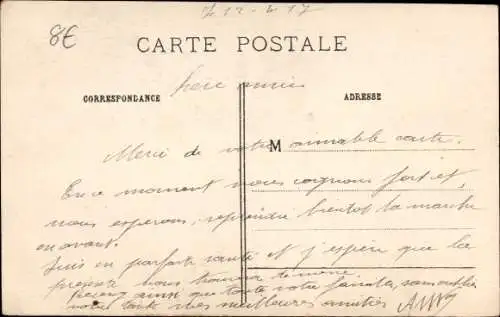 8€
CARTE POSTALE
CORRESPONDANCE
ADRESSE
M
Merci de votre aimable carte.
En ce moment nous cognons fort et,
nous esperons, reprendre bientot la marche
en avant.
Suis en parfaite santé et j'espère que la
nous trouvera de même.
ainsi que toute votre famille, sans oublier
mes meilleures amitiés